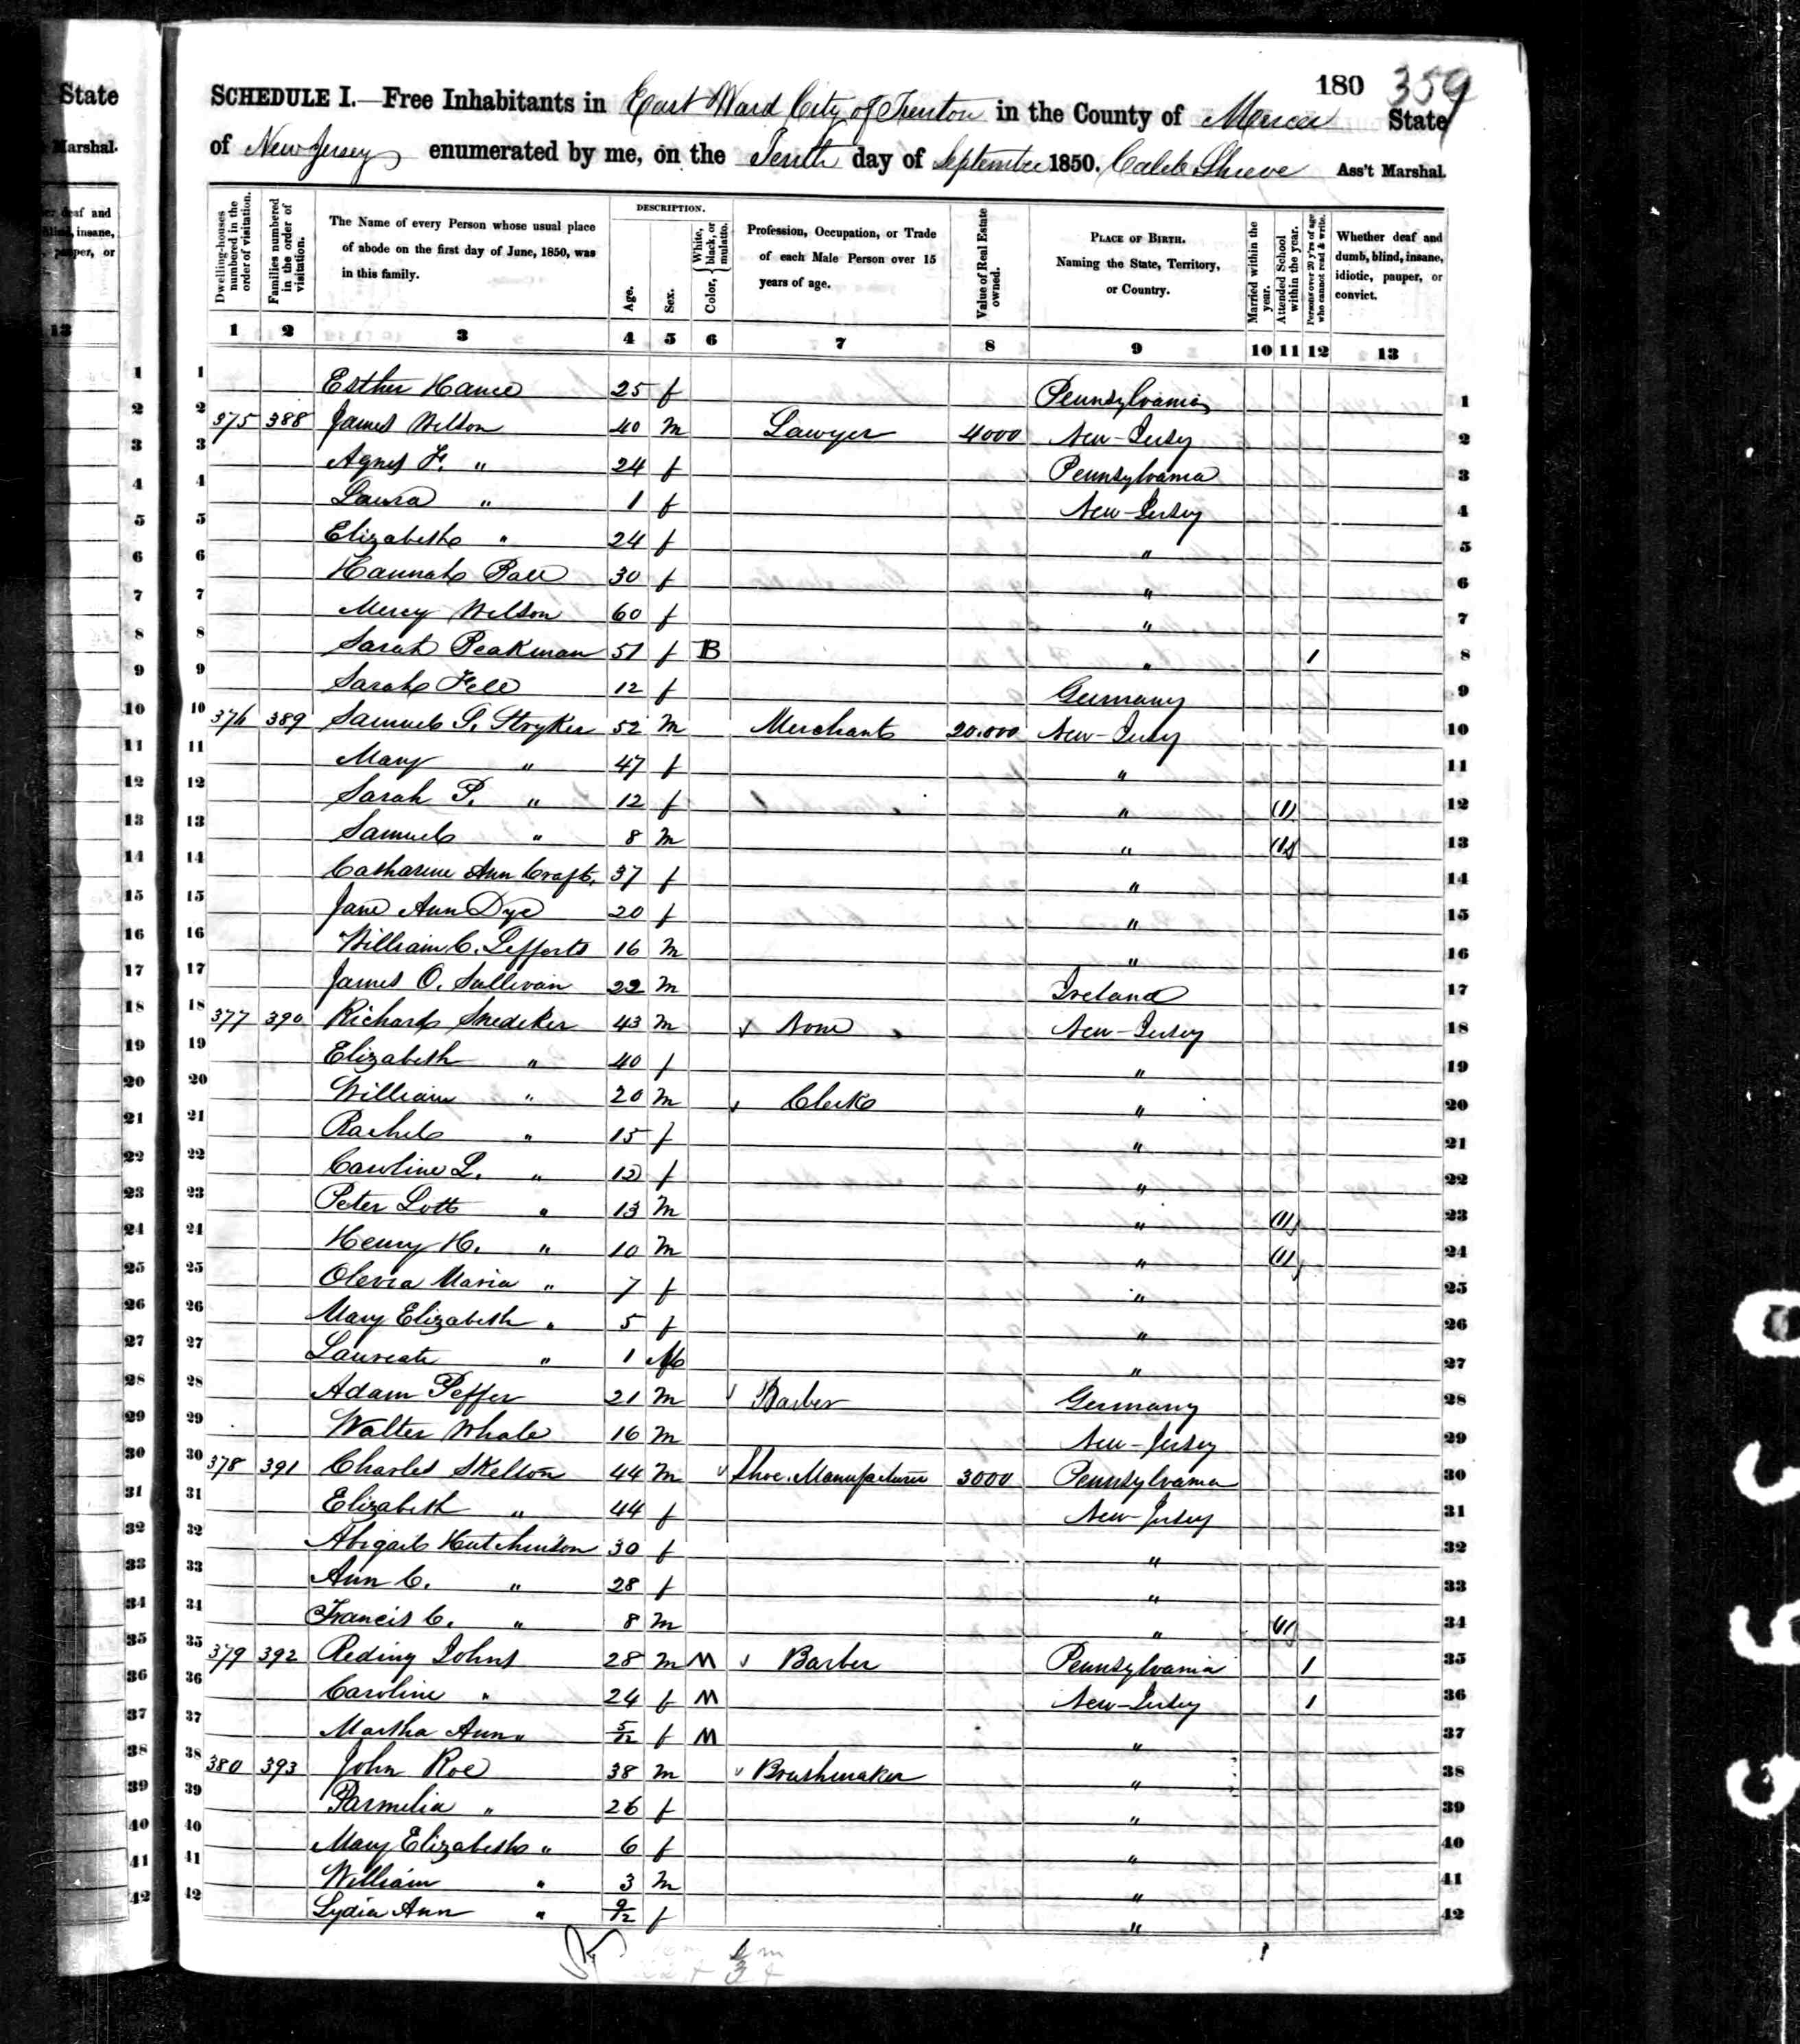 State
Marshal.
13
180 359
SCHEDULE I.—Free Inhabitants in East Ward City of Trenton in the County of Mercer State
of New Jersey enumerated by me, on the Tenth day of September 1850. Caleb Shreve Ass't Marshal.
Dwelling-houses numbered in the order of visitation.
Families numbered in the order of visitation.
The Name of every Person whose usual place of abode on the first day of June, 1850, was in this family.
DESCRIPTION.
Age.
Sex.
Color, { White, black, or mulatto.
Profession, Occupation, or Trade of each Male Person over 15 years of age.
Value of Real Estate owned.
PLACE OF BIRTH. Naming the State, Territory, or Country.
Married within the year.
Attended School within the year.
Persons over 20 y'rs of age who cannot read & write.
Whether deaf and dumb, blind, insane, idiotic, pauper, or convict.
1 2 3 4 5 6 7 8 9 10 11 12 13
1 Esther Hance 25 f Pennsylvania 1
2 375 388 James Wilson 40 m Lawyer 4000 New-Jersey 2
3 Agnes F. " 24 f Pennsylvania 3
4 Laura " 1 f New-Jersey 4
5 Elizabeth " 24 f " 5
6 Hannah 30 f " 6
7 Mercy Wilson 60 f " 7
8 Sarah Peakman 51 f B " 1 8
9 Sarah Fell 12 f Germany 9
10 376 389 Samuel S. Stryker 52 m Merchant 20.000 New-Jersey 10
11 Mary " 47 f " 11
12 Sarah P. " 12 f " (1) 12
13 Samuel " 8 m " (1) 13
14 Catharine Ann Craft. 37 f " 14
15 Jane Ann Dye 20 f " 15
16 William C. Lefferts 16 m " 16
17 James O. Sullivan 22 m Ireland 17
18 377 390 Richard Snediker 43 m None New-Jersey 18
19 Elizabeth " 40 f " 19
20 William " 20 m Clerk " 20
21 Rachel " 15 f " 21
22 Caroline L. " 12 f " 22
23 Peter Lott " 13 m " (1) 23
24 Henry H. " 10 m " (1) 24
25 Olevia Maria " 7 f " 25
26 Mary Elizabeth " 5 f " 26
27 Laureate " 1 " 27
28 Adam Peffer 21 m Barber Germany 28
29 Walter Whale 16 m New-Jersey 29
30 378 391 Charles Skelton 44 m Shoe. Manufacturer 3000 Pennsylvania 30
31 Elizabeth " 44 f New-Jersey 31
32 Abigail Hutchinson 30 f " 32
33 Ann C. " 28 f " 33
34 Francis C. " 8 m " (1) 34
35 379 392 Reding Johns 28 m M Barber Pennsylvania 1 35
36 Caroline " 24 f M New-Jersey 1 36
37 Martha Ann " 5/12 f M " 37
38 380 393 John Roe 38 m Brushmaker " 38
39 Parmelia " 26 f " 39
40 Mary Elizabeth " 6 f " 40
41 William " 3 m " 41
42 Lydia Ann " 9/12 f " 42